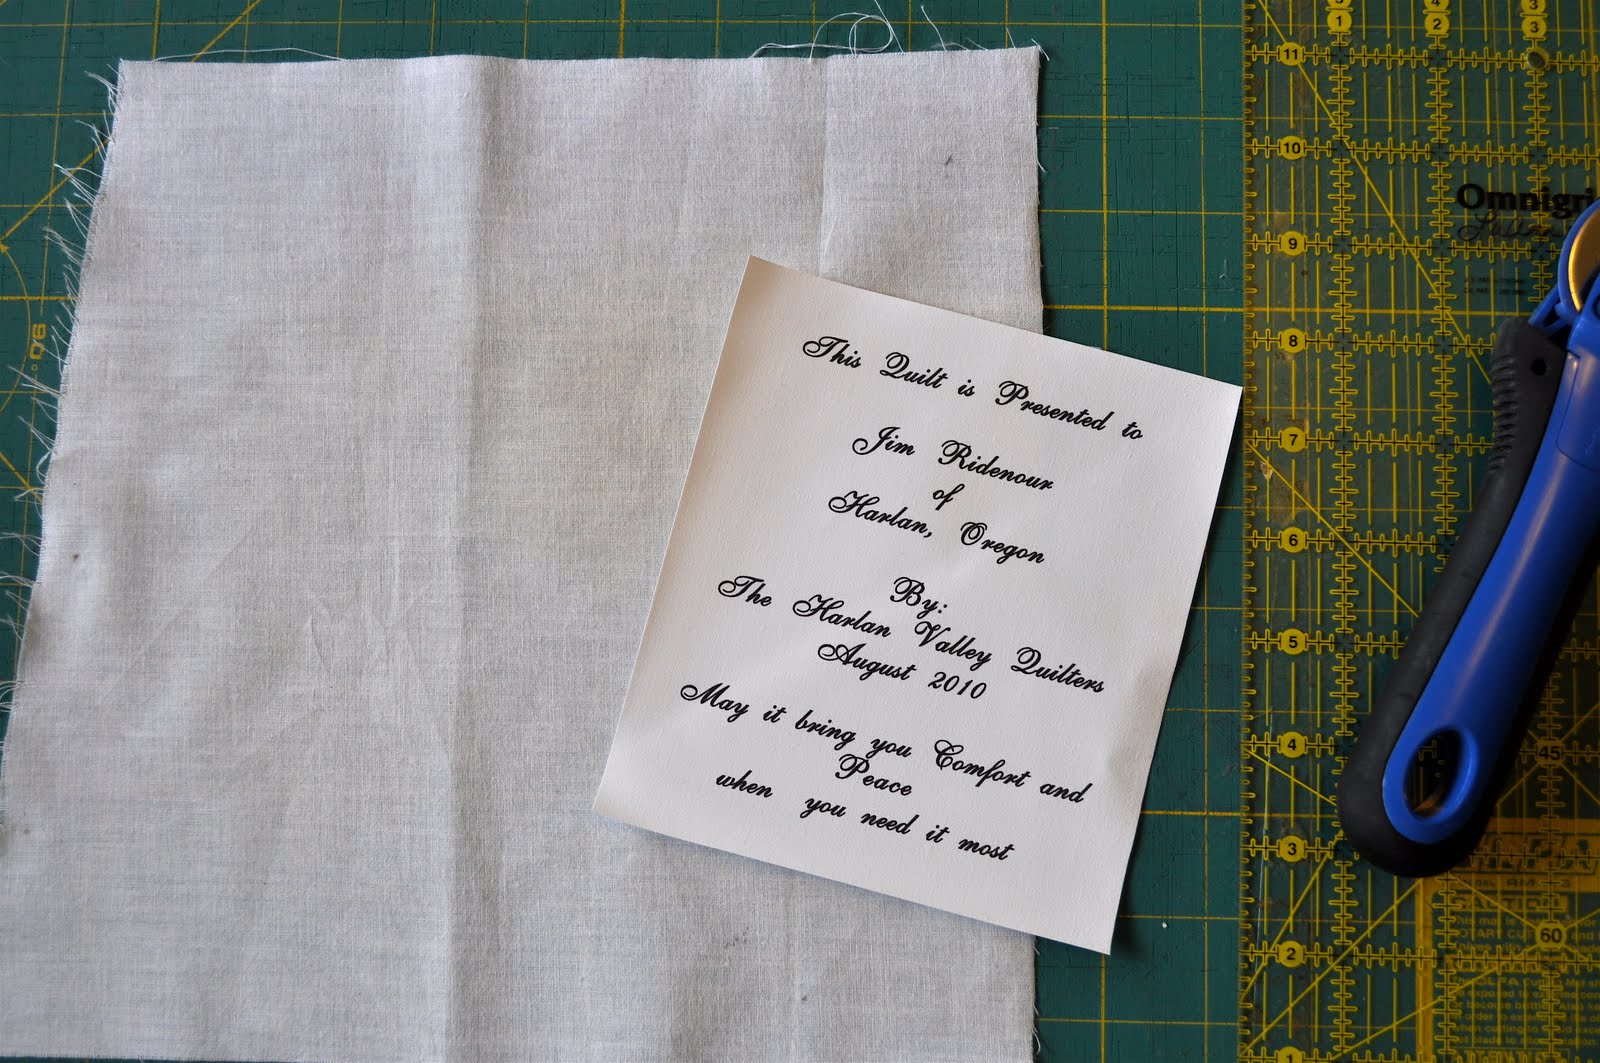 This Quilt is Presented to
Jim Ridenour
of
Harlan, Oregon
By:
The Harlan Valley Quilters
August 2010
May it bring you Comfort and
Peace
when you need it most
1 2 3
11
10
9
8
7
6
5
4
3
2
1
Omnigri
45
60
90